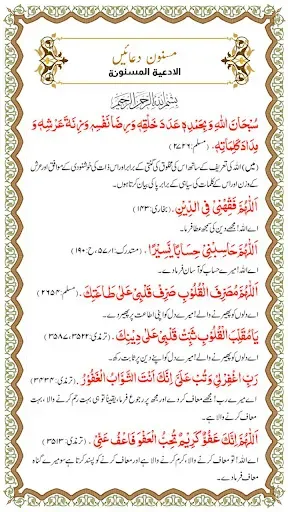 مسنون دعائیں
الادعية المسنونة
بِسْمِ اللهِ الرَّحْمٰنِ الرَّحِيْمِ
سُبْحَانَ اللهِ وَبِحَمْدِهٖ عَدَدَ خَلْقِهٖ وَرِضَا نَفْسِهٖ وَزِنَةَ عَرْشِهٖ وَ
مِدَادَ كَلِمَاتِهٖ. (مسلم: ۲۷۲۶)
(میں) اللہ کی تعریف کے ساتھ اس کی مخلوق کی گنتی کے برابر اور اس ذات کی خوشنودی کے موافق اور عرش
کے وزن اور اس کے کلمات کی سیاہی کے برابر پاکی بیان کرتا ہوں۔
اَللّٰهُمَّ فَقِّهْنِيْ فِي الدِّيْنِ. (بخاری: ۱۴۳)
اے اللہ! مجھے دین کی سمجھ عطا فرما۔
اَللّٰهُمَّ حَاسِبْنِيْ حِسَابًا يَّسِيْرًا. (مستدرک: ۱ے۵، ح: ۱۹۰)
اے اللہ! میرے حساب کو آسان فرما دے۔
اَللّٰهُمَّ مُصَرِّفَ الْقُلُوْبِ صَرِّفْ قَلْبِيْ عَلٰى طَاعَتِكَ. (مسلم: ۲۶۵۴)
اے دلوں کو پھیرنے والے! میرے دل کو اپنی اطاعت پر پھیر دے۔
يَا مُقَلِّبَ الْقُلُوْبِ ثَبِّتْ قَلْبِيْ عَلٰى دِيْنِكَ. (ترمذی: ۳۵۲۲، ۳۵۸۷)
اے دلوں کو پھیرنے والے! میرے دل کو اپنے دین پر ثابت رکھ۔
رَبِّ اغْفِرْ لِيْ وَتُبْ عَلَيَّ اِنَّكَ اَنْتَ التَّوَّابُ الْغَفُوْرُ. (ترمذی: ۳۴۳۴)
اے میرے رب! مجھے معاف کر دے اور مجھ پر رجوع فرما، یقیناً تو ہی بہت رحم کرنے والا، بہت
معاف کرنے والا ہے۔
اَللّٰهُمَّ اِنَّكَ عَفُوٌّ كَرِيْمٌ تُحِبُّ الْعَفْوَ فَاعْفُ عَنِّيْ. (ترمذی: ۳۵۱۳)
اے اللہ! تو معاف کرنے والا، کرم کرنے والا ہے اور معاف کرنے کو پسند کرتا ہے سو میرے گناہ
معاف فرما دے۔